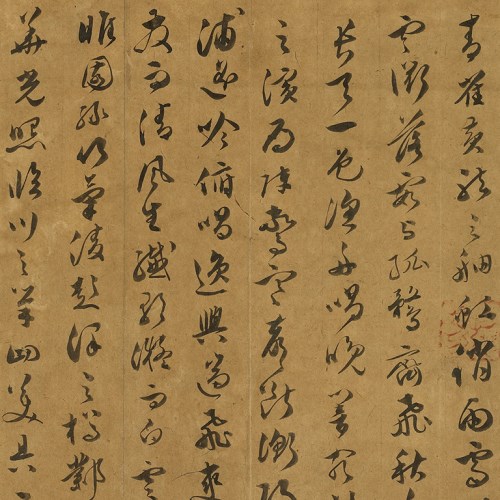 青雀黃龍之舳虹銷雨霽
雲衢落霞与孤鶩齊飛秋
長天一色漁舟唱晚響窮
之濱雁陣驚寒聲斷衡陽
浦遙吟俯唱逸興遄飛爽
發而清風生纖歌凝而白雲
睢園綠竹氣凌彭澤之樽鄴
華光照臨川之筆四美具